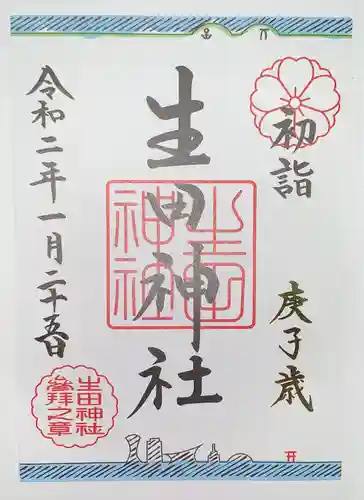 初詣
庚子歳
生田神社
生田神社
令和二年一月二十五日
生田神社
参拝之章